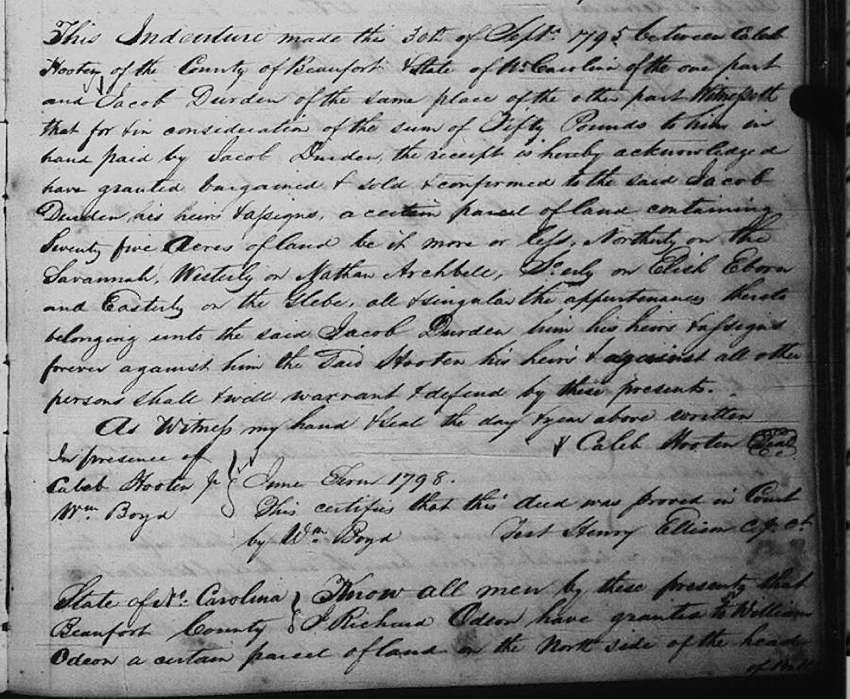 This Indenture made the 30th of Septr. 1795 between Caleb
Hooten of the County of Beaufort & State of No. Carolina of the one part
and Jacob Durden of the same place of the other part Witnesseth
that for & in consideration of the sum of Fifty Pounds to him in
hand paid by Jacob Durden, the receipt is hereby acknowledged
have granted bargained & sold & confirmed to the said Jacob
Durden, his heirs & assigns, a certain parcel of land containing
Seventy five Acres of land be it more or less, Northerly on the
Savannah, Westerly on Nathan Archbell, So.erly on Elich Eborn
and Easterly on the Glebe, all & singular the appurtenances thereto
belonging unto the said Jacob Durden him his heirs & assigns
forever against him the Said Hooten his heirs & against all other
persons shall & will warrant & defend by these presents.
As Witness my hand & Seal the day & year above written
Caleb Hooten Seal
In presence of
Caleb Hooten Jr } June Term 1798.
Wm. Boyd This certifies that this deed was proved in Court
by Wm. Boyd Test Henry Ellison C.C. Ct
State of No. Carolina } Know all men by these presents that
Beaufort County } I Richard Odeon have granted to William
Odeon a certain parcel of land on the North side of the head
of